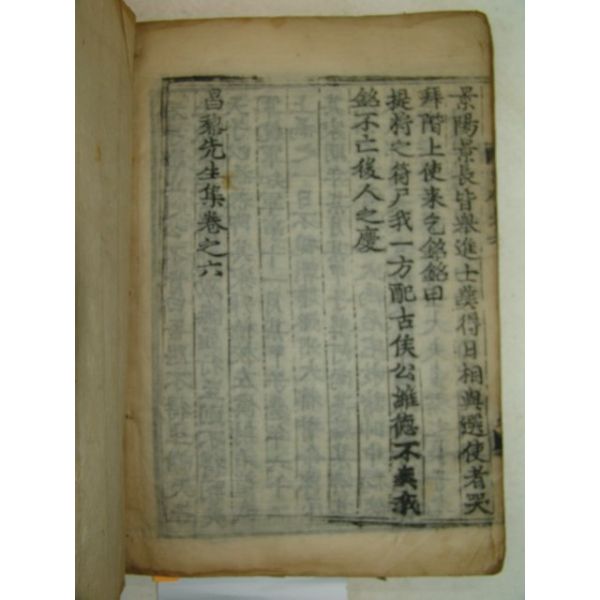 景陽景長皆舉進士葬得日相與遣使者哭
拜階上使來乞銘銘曰
提將之符尸我一方配古侯公維德不爽我
銘不亡後人之慶
昌黎先生集卷之六